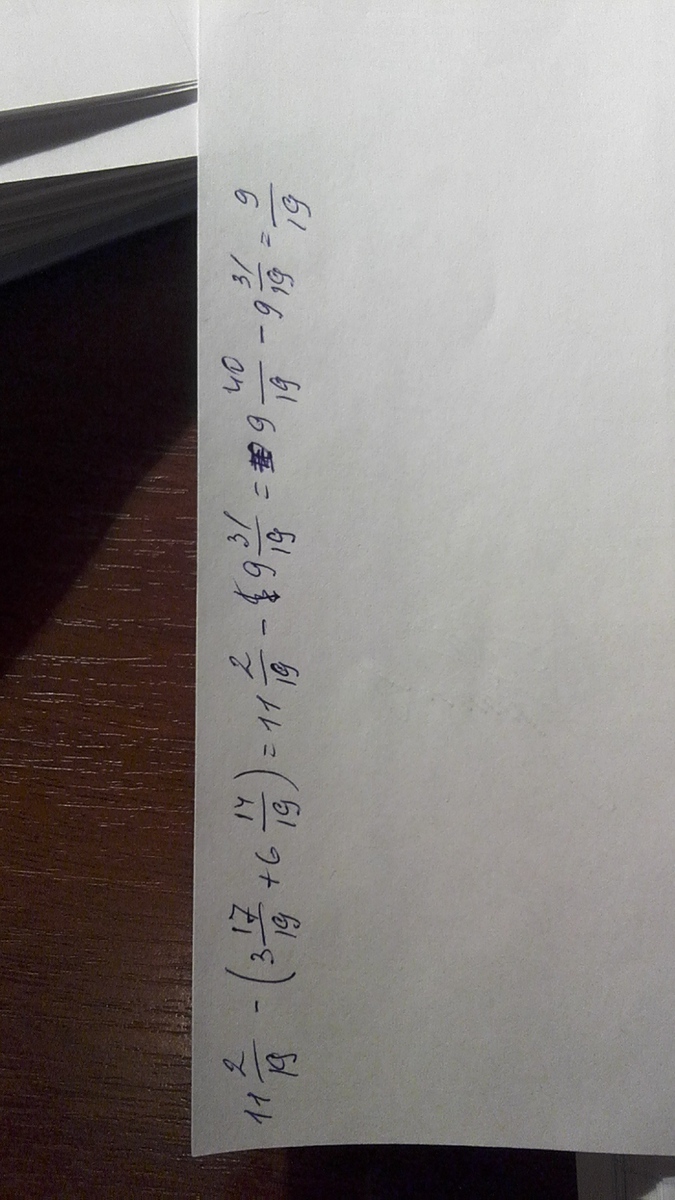 11 2/19 - (3 17/19 + 6 14/19) = 11 2/19 - 9 31/19 = 9 40/19 - 9 31/19 = 9/19